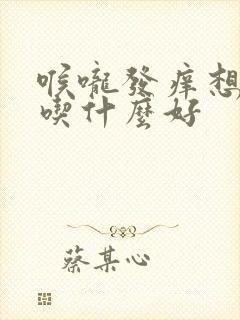 喉嚨發痒想
喫什麼好
蔡某心